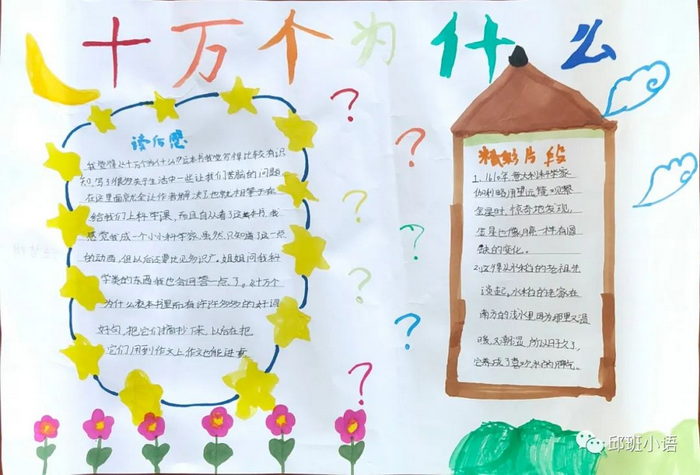 十万个为什么
读后感
我觉得《十万个为什么》这本书我觉得比较有识
知,写了很多关于生活中一些让我们苦脑的问题。
在这里面就全让作者解决了,也就相等于在
给我们上科学课,而且自从看了这本书,我
感觉我成一个小小科学家,虽然只知道了这一些
的动西,但以后还要比见多识广。姐姐问我科
学类的东西我也会回答一点了。《十万个
为什么》这本书里所有许许多多的好词
好句,把它们摘抄下来,以后在把
它们用到作文上作文也能进
精妙片段
1、1610年,意大利科学家
伽利略用望远镜观察
金星时,惊奇地发现,
金星也像月亮一样有圆
缺的变化。
2、这得从水稻的老祖先
谈起,水稻的老家在
南方的浅水里,因为那里又温
暖,又潮湿,所以日子久了,
它养成了喜欢水的脾气。
邱班小语